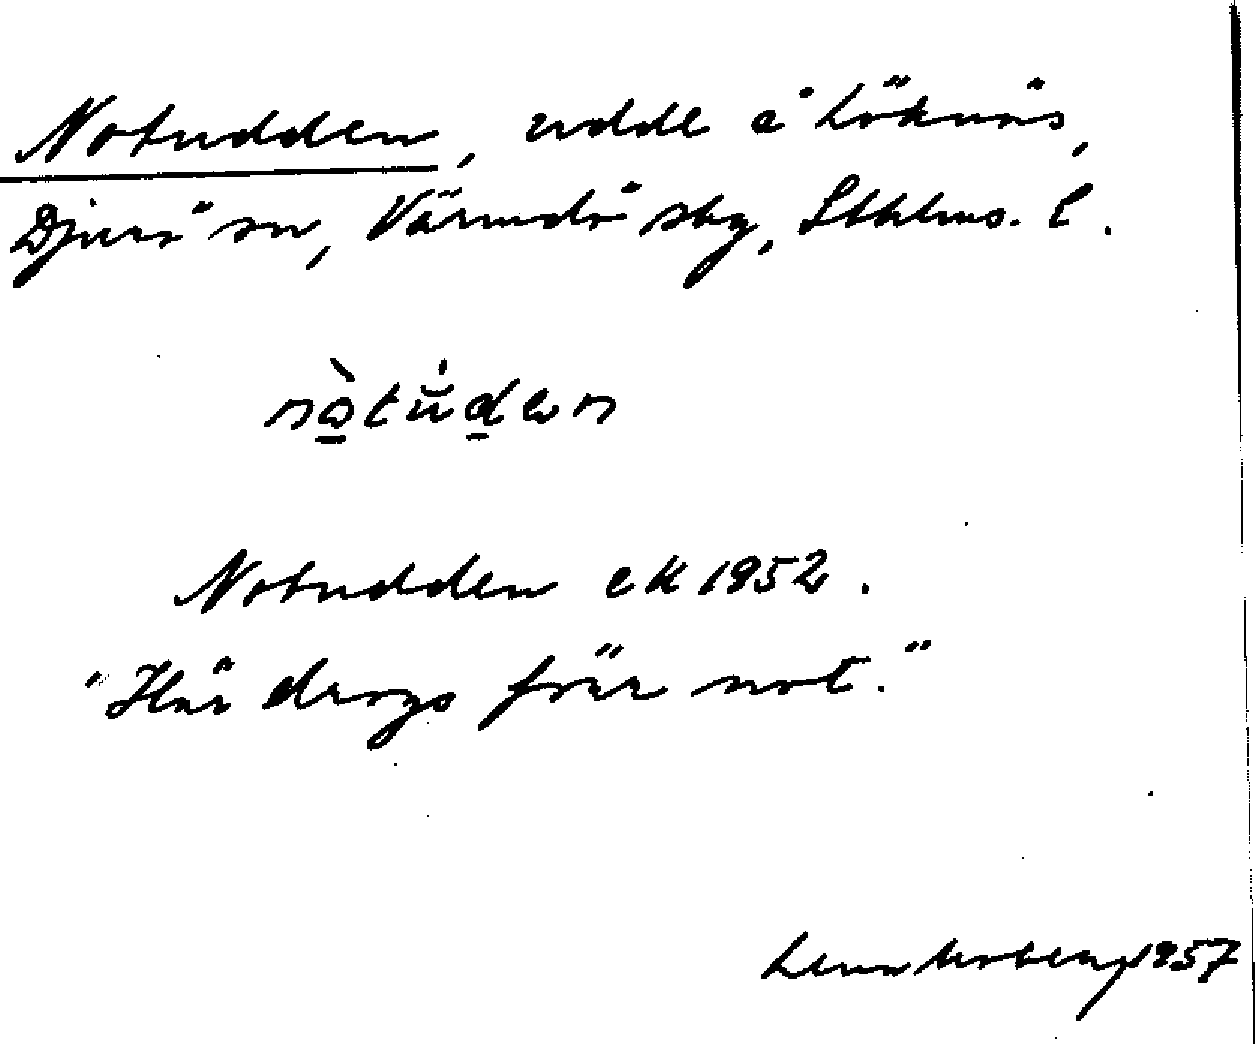 Notudden, udde å Löknäs,
Djurö sn, Värmdö skg, Sthlms. l.
nò̲tŭ́d̲en
Notudden ek 1952.
"Här drogs förr not."
1957